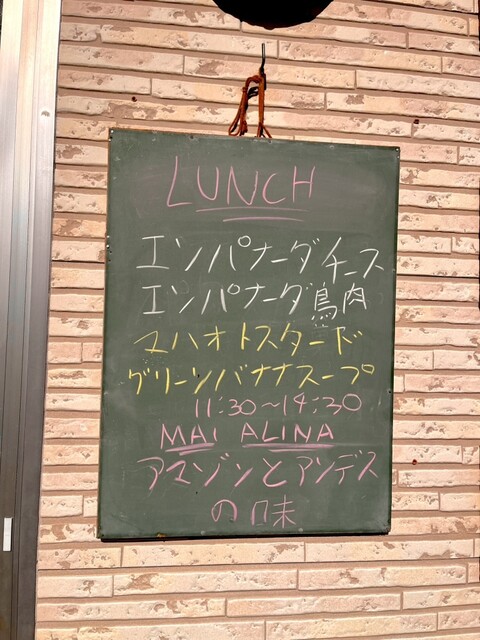 LUNCH
エンパナーダチース
エンパナーダ鳥肉
マハオトスタード
グリーンバナナスープ
11:30~14:30
MAI ALINA
アマゾンとアンデス
の味